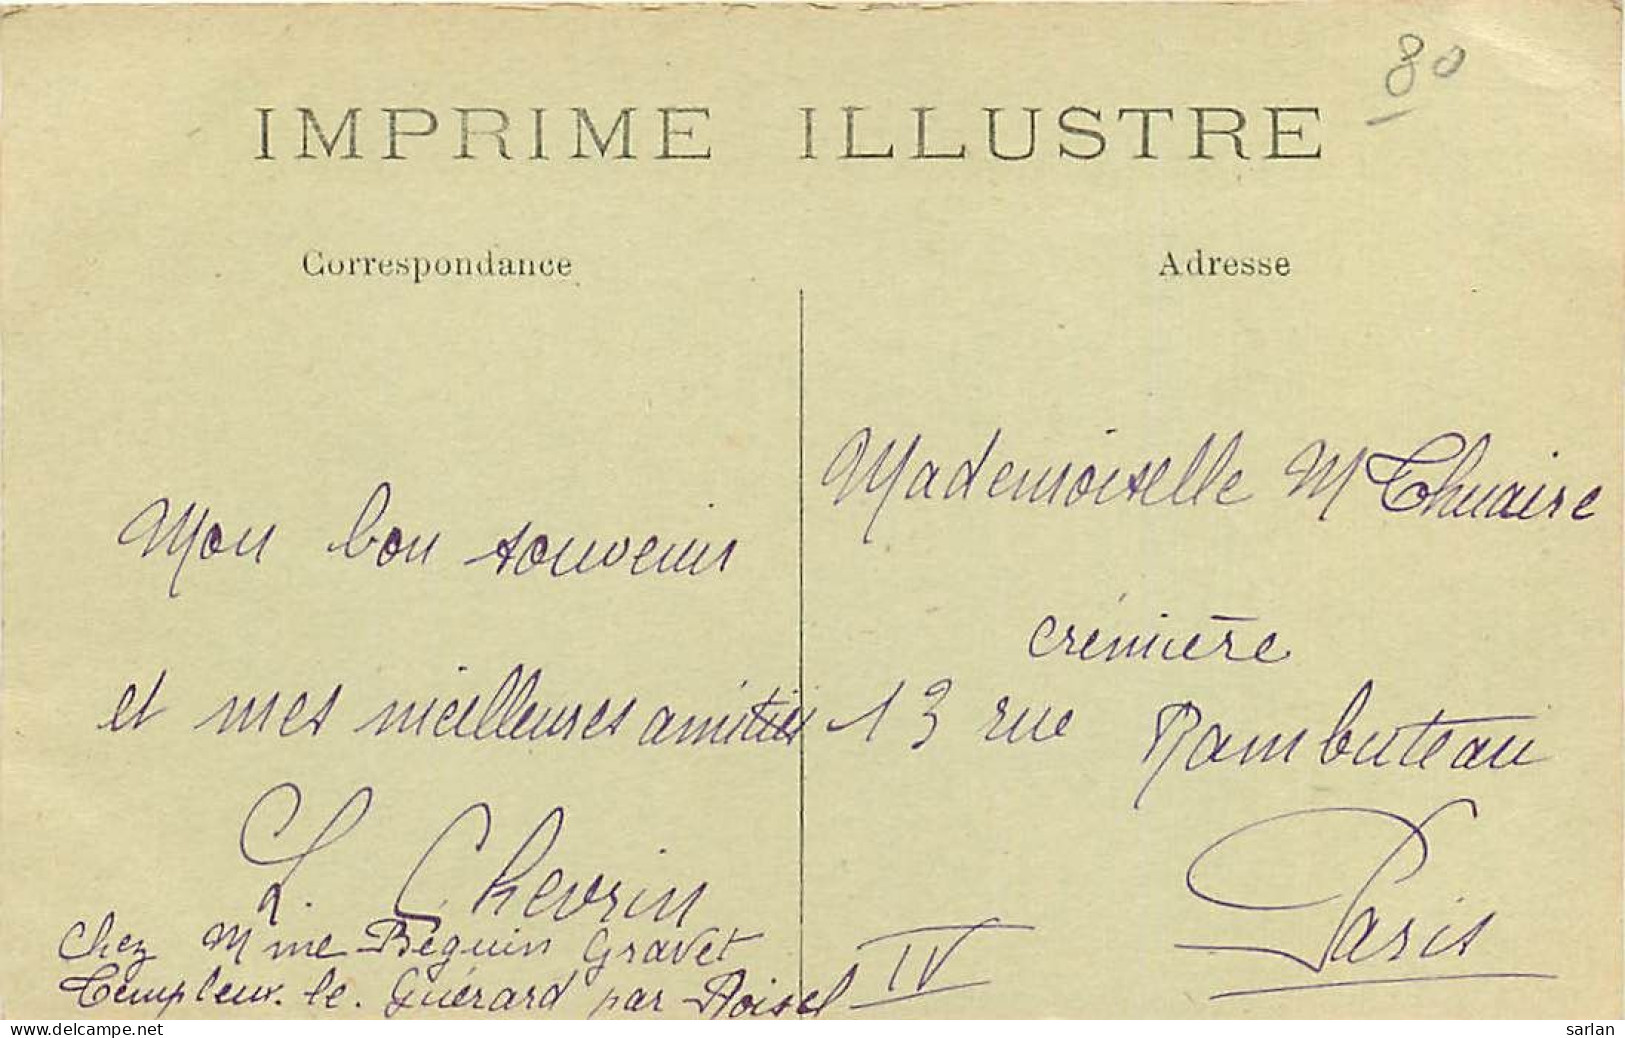 80
IMPRIME ILLUSTRE
Correspondance
Adresse
Mon bon souvenir
et mes meilleures amitiés
L. Chevrin
Chez Mme Béguin Gravet
Templeux. le. Guérard par Roisel
Mademoiselle M Thuaire
crémière
13 rue Rambuteau
Paris
IV
www.delcampe.net
sarlan